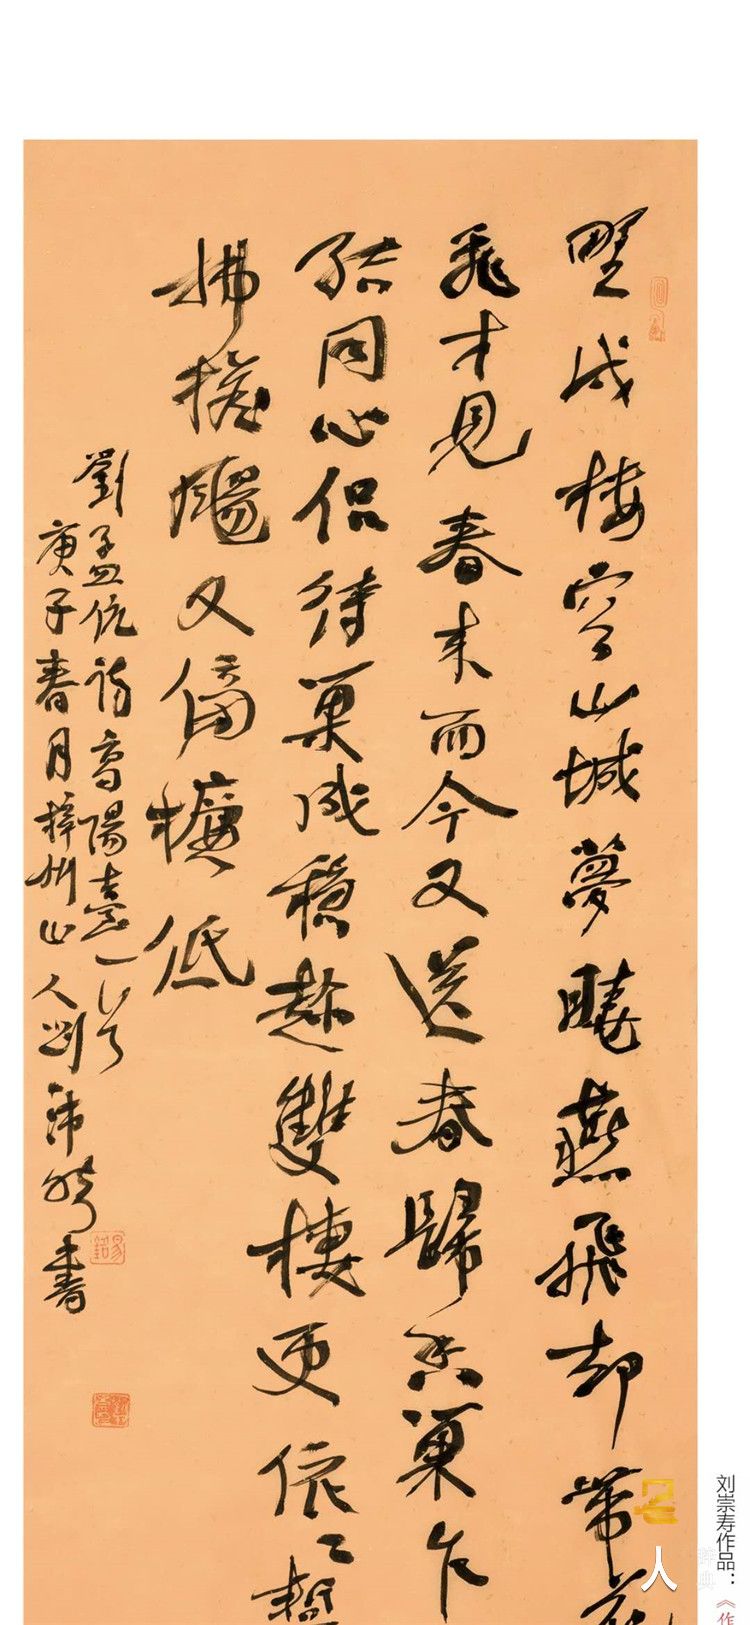 野戍樓空山城夢曉燕飛却帶花
飛才見春來而今又送春歸巢乍
結同心侶待巢成穩趁雙棲更依
拂檐颺又傍低
劉孟伉高陽臺一
庚子春月梓州山人劉書
刘崇寿作品：《作
人
辞典